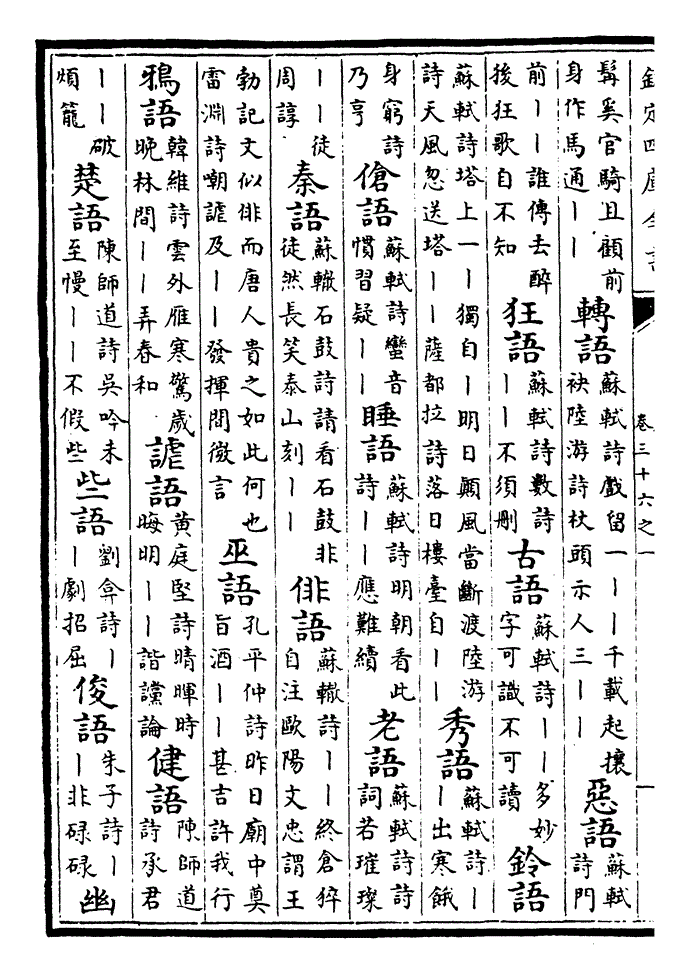 欽定四庫全書 卷三十六之一 一
髯奚官騎且顧前身作馬通丨丨 轉語 蘇軾詩戲留一丨丨千載起攘袂陸游詩杖頭示人三丨丨 惡語 蘇軾詩門
前丨丨誰傳去醉後狂歌自不知 狂語 蘇軾詩數詩丨丨不須刪 古語 蘇軾詩丨丨多妙字可識不可讀 鈴語
蘇軾詩塔上一丨獨自丨明日顛風當斷渡陸游詩天風忽送塔丨丨薩都拉詩落日樓臺自丨丨 秀語 蘇軾詩丨丨出寒餓
身窮詩乃亨 傖語 蘇軾詩蠻音慣習疑丨丨 睡語 蘇軾詩明朝看此詩丨丨應難續 老語 蘇軾詩詩詞若璀璨
丨丨徒周諄 秦語 蘇轍石鼓詩請看石鼓非徒然長笑泰山刻丨丨 俳語 蘇轍詩丨丨終倉猝自注歐陽文忠謂王
勃記文似俳而唐人貴之如此何也雷淵詩嘲謔及丨丨發揮間微言 巫語 孔平仲詩昨日廟中奠旨酒丨丨甚吉許我行
鴉語 韓維詩雲外雁寒驚歲晚林間丨丨弄春和 謔語 黄庭堅詩晴暉時晦明丨丨諧讜論 健語 陳師道詩承君
丨丨破煩籠 楚語 陳師道詩吳吟未至慢丨丨不假些 些語 劉弇詩丨丨劇招屈 俊語 朱子詩丨丨非碌碌 幽